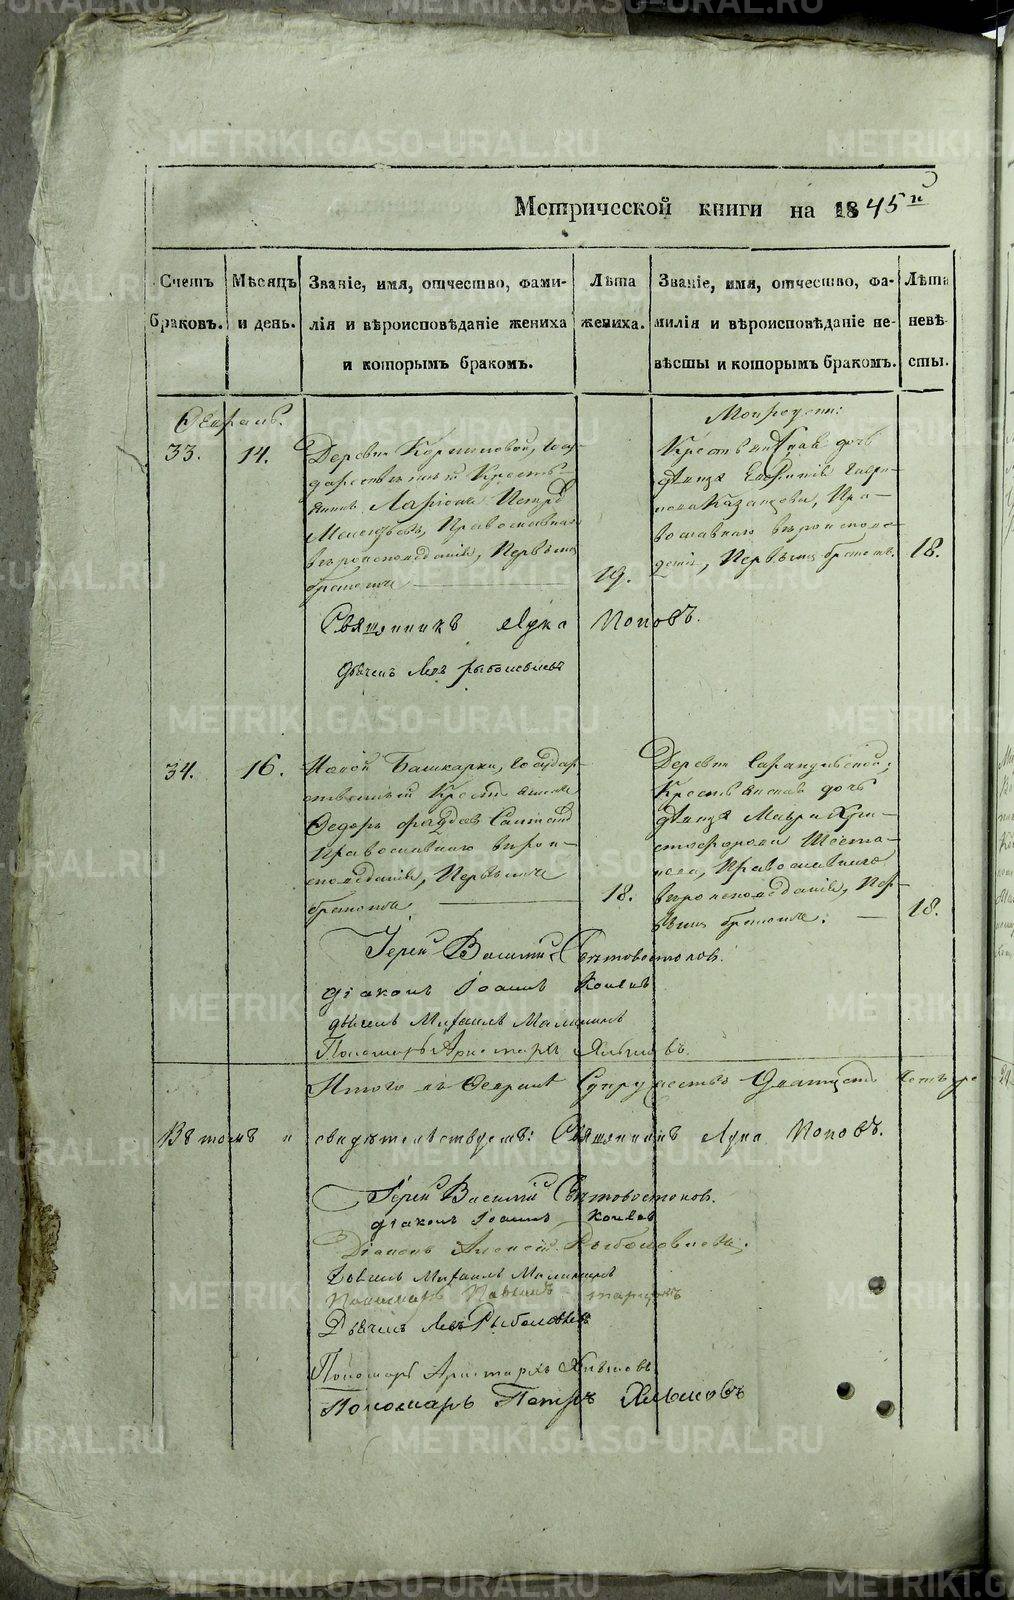 METRIKI.GASO-URAL.RU
Метрической книги на 1845 й
Счетъ браковъ.
Мѣсяцъ и день.
Званіе, имя, отчество, фами-
лія и вѣроисповѣданіе жениха
и которымъ бракомъ.
Лѣта жениха.
Званіе, имя, отчество, фа-
милія и вѣроисповѣданіе не-
вѣсты и которымъ бракомъ.
Лѣта невѣ-
сты.
Февраль.
33.
14.
Деревни Госу-
дарственный Кресть-
янинъ Ларіонъ Петровъ
Православнаго
вѣроисповѣданія, Первымъ
бракомъ
19.
Крестьянская дочь
дѣвица Евфимія Гаври-
лова Казанцева, Пра-
вославнаго вѣроисповѣ-
данія, Первымъ бракомъ.
18.
Священникъ Лука Поповъ.
Дьячекъ Левъ Рыболовлевъ
34.
16.
Башкарки, Государ-
ственный Крестьянинъ
Ѳедоръ
Православнаго вѣрои-
сповѣданія, Первымъ
бракомъ
18.
Деревни
Крестьянская дочь
дѣвица Мавра Хри-
стофорова Шеста-
кова, Православнаго
вѣроисповѣданія, Пер-
вымъ бракомъ.
18.
Іерей Василій Свѣтовостоковъ.
діаконъ Іоаннъ
дьячекъ Михаилъ Малининъ
Пономарь Аристархъ
Итого въ Февралѣ Супружествъ Двадцать Четыре
Въ томъ и свидѣтельствуемъ: Священникъ Лука Поповъ.
Іерей Василій Свѣтовостоковъ.
діаконъ Іоаннъ
Діаконъ Алексій Рыболовлевъ.
Михаилъ Малининъ
Пономарь
Дьячекъ Левъ Рыболовлевъ
Пономарь Аристархъ
Пономарь Петръ